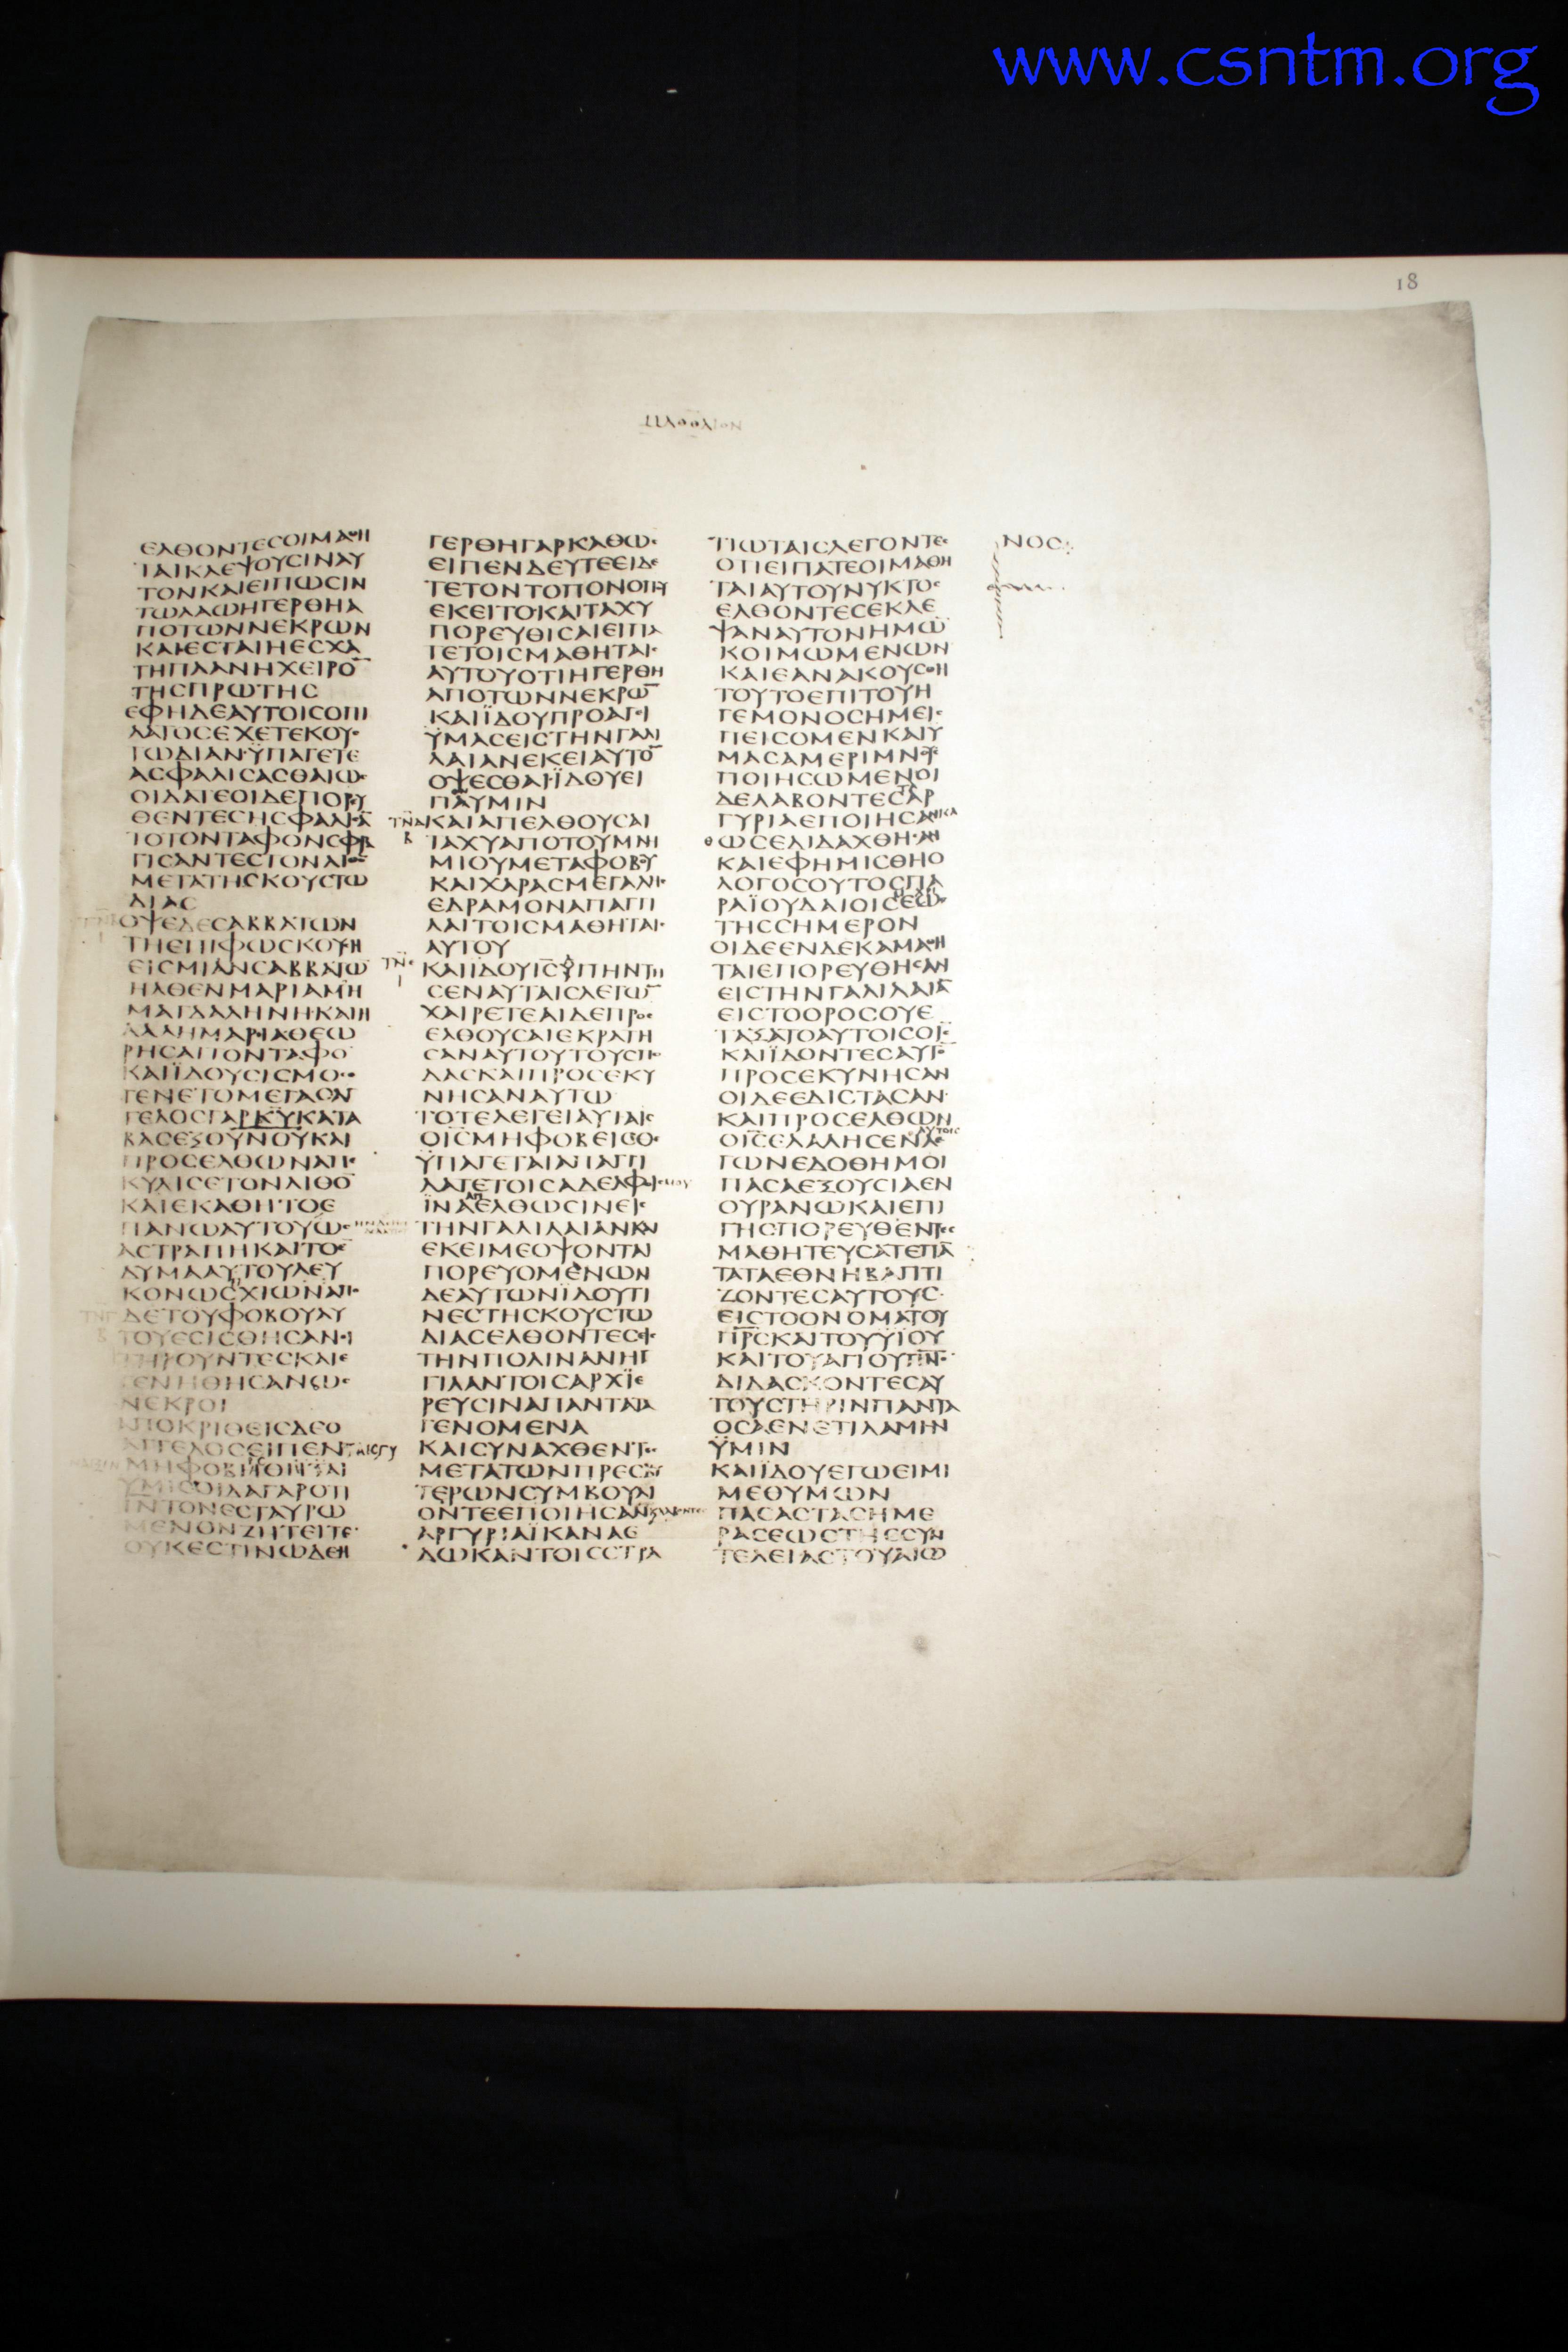 www.csntm.org
18
ΕΛΘΟΝΤΕCΟΙΜΑΘΗ
ΤΑΙΚΛΕΨΟΥCΙΝΑΥ
ΤΟΝΚΑΙΕΙΠΩCΙΝ
ΤΩΛΑΩΗΓΕΡΘΗΑ
ΠΟΤΩΝΝΕΚΡΩΝ
ΚΑΙΕCΤΑΙΗΕCΧΑ
ΤΗΠΛΑΝΗΧΕΙΡΟ̅
ΤΗCΠΡΩΤΗC
ΕΦΗΔΕΑΥΤΟΙCΟΠΙ
ΛΑΤΟCΕΧΕΤΕΚΟΥC
ΤΩΔΙΑΝ·ΫΠΑΓΕΤΕ
ΑCΦΑΛΙCΑCΘΑΙΩC
ΟΙΔΑΤΕΟΙΔΕΠΟΡΕΥ
ΘΕΝΤΕCΗCΦΑΛΙCΑ̅
ΤΟΤΟΝΤΑΦΟΝCΦΡΑ
ΓΙCΑΝΤΕCΤΟΝΛΙΘΟ̅
ΜΕΤΑΤΗCΚΟΥCΤΩ
ΔΙΑC
ΟΨΕΔΕCΑΒΒΑΤΩΝ
ΤΗΕΠΙΦΩCΚΟΥCΗ
ΕΙCΜΙΑΝCΑΒΒΑΤΩ̅
ΗΛΘΕΝΜΑΡΙΑΜΗ
ΜΑΓΔΑΛΗΝΗΚΑΙΗ
ΑΛΛΗΜΑΡΙΑΘΕΩ
ΡΗCΑΙΤΟΝΤΑΦΟ̅
ΚΑΙΪΔΟΥCΙCΜΟCΕ
ΓΕΝΕΤΟΜΕΓΑCΑΓ
ΓΕΛΟCΓΑΡΚ̅Υ̅ΚΑΤΑ
ΒΑCΕΞΟΥΝΟΥΚΑΙ
ΠΡΟCΕΛΘΩΝΑΠΕ
ΚΥΛΙCΕΤΟΝΛΙΘΟ̅
ΚΑΙΕΚΑΘΗΤΟΕ
ΠΑΝΩΑΥΤΟΥΩC
ΑCΤΡΑΠΗΚΑΙΤΟΕ̅
ΔΥΜΑΑΥΤΟΥΛΕΥ
ΚΟΝΩCΧΙΩΝΑΠΟ
ΔΕΤΟΥΦΟΒΟΥΑΥ
ΤΟΥΕCΙCΘΗCΑΝΟΙ
ΤΗΡΟΥΝΤΕCΚΑΙΕ
ΓΕΝΗΘΗCΑΝΩC
ΝΕΚΡΟΙ
ΑΠΟΚΡΙΘΕΙCΔΕΟ
ΑΓΓΕΛΟCΕΙΠΕΝΤΑΙCΓΥ
ΥΜΙCΟΙΔΑΓΑΡΟΤΙ
ΙΝΤΟΝΕCΤΑΥΡΩ
ΜΕΝΟΝΖΗΤΕΙΤΕ
ΟΥΚΕCΤΙΝΩΔΕΗ
ΓΕΡΘΗΓΑΡΚΑΘΩC
ΕΙΠΕΝΔΕΥΤΕΕΙΔΕ
ΤΕΤΟΝΤΟΠΟΝΟΠΟΥ
ΕΚΕΙΤΟΚΑΙΤΑΧΥ
ΠΟΡΕΥΘΙCΑΙΕΙΠΑ
ΤΕΤΟΙCΜΑΘΗΤΑΙC
ΑΥΤΟΥΟΤΙΗΓΕΡΘΗ
ΑΠΟΤΩΝΝΕΚΡΩ̅
ΚΑΙΪΔΟΥΠΡΟΑΓΕΙ
ΫΜΑCΕΙCΤΗΝΓΑΛΙ
ΛΑΙΑΝΕΚΕΙΑΥΤΟ̅
ΟΨΕCΘΑΙ·ΪΔΟΥΕΙ
ΠΑΥΜΙΝ
ΚΑΙΑΠΕΛΘΟΥCΑΙ
ΤΑΧΥΑΠΟΤΟΥΜΝΗ
ΜΙΟΥΜΕΤΑΦΟΒΟΥ
ΚΑΙΧΑΡΑCΜΕΓΑΛΗC
ΕΔΡΑΜΟΝΑΠΑΓΓΙ
ΛΑΙΤΟΙCΜΑΘΗΤΑΙC
ΑΥΤΟΥ
ΚΑΙΪΔΟΥΙ̅C̅ΫΠΗΝΤΗ
CΕΝΑΥΤΑΙCΛΕΓΩ̅
ΧΑΙΡΕΤΕΑΙΔΕΠΡΟC
ΕΛΘΟΥCΑΙΕΚΡΑΤΗ
CΑΝΑΥΤΟΥΤΟΥCΠΟ
ΔΑCΚΑΙΠΡΟCΕΚΥ
ΝΗCΑΝΑΥΤΩ
ΤΟΤΕΛΕΓΕΙΑΥΤΑΙC
ΟΙ̅C̅ΜΗΦΟΒΕΙCΘΕ
ΫΠΑΓΕΤΑΙΑΠΑΓΓΙ
ΛΑΤΕΤΟΙCΑΔΕΛΦΟΙCΜΟΥ
ΪΝΑΕΛΘΩCΙΝΕΙC
ΤΗΝΓΑΛΙΛΑΙΑΝΚΑΙ
ΕΚΕΙΜΕΟΨΟΝΤΑΙ
ΠΟΡΕΥΟΜΕΝΩΝ
ΔΕΑΥΤΩΝΪΔΟΥΤΙ
ΝΕCΤΗCΚΟΥCΤΩ
ΔΙΑCΕΛΘΟΝΤΕCΕΙC
ΤΗΝΠΟΛΙΝΑΝΗΓ
ΓΙΛΑΝΤΟΙCΑΡΧΪΕ
ΡΕΥCΙΝΑΠΑΝΤΑΤΑ
ΓΕΝΟΜΕΝΑ
ΚΑΙCΥΝΑΧΘΕΝΤΕC
ΜΕΤΑΤΩΝΠΡΕCΒΥ
ΤΕΡΩΝCΥΜΒΟΥΛΙ
ΟΝΤΕΕΠΟΙΗCΑΝ
ΑΡΓΥΡΙΑΪΚΑΝΑΕ
ΔΩΚΑΝΤΟΙCCΤΡΑ
ΤΙΩΤΑΙCΛΕΓΟΝΤΕC
ΟΤΙΕΙΠΑΤΕΟΙΜΑΘΗ
ΤΑΙΑΥΤΟΥΝΥΚΤΟC
ΕΛΘΟΝΤΕCΕΚΛΕ
ΨΑΝΑΥΤΟΝΗΜΩ̅
ΚΟΙΜΩΜΕΝΩΝ
ΚΑΙΕΑΝΑΚΟΥCΘΗ
ΤΟΥΤΟΕΠΙΤΟΥΗ
ΓΕΜΟΝΟCΗΜΕΙC
ΠΕΙCΟΜΕΝΚΑΙΥ
ΜΑCΑΜΕΡΙΜΝΟΥC
ΠΟΙΗCΩΜΕΝΟΙ
ΔΕΛΑΒΟΝΤΕCΑΡ
ΓΥΡΙΑΕΠΟΙΗCΑΝ
ΩCΕΔΙΔΑΧΘΗCΑΝ
ΚΑΙΕΦΗΜΙCΘΗΟ
ΛΟΓΟCΟΥΤΟCΠΑ
ΡΑΪΟΥΔΑΙΟΙCΕΩC
ΤΗCCΗΜΕΡΟΝ
ΟΙΔΕΕΝΔΕΚΑΜΑΘΗ
ΤΑΙΕΠΟΡΕΥΘΗCΑΝ
ΕΙCΤΗΝΓΑΛΙΛΑΙΑ̅
ΕΙCΤΟΟΡΟCΟΥΕ
ΤΑΞΑΤΟΑΥΤΟΙCΟΙC
ΚΑΙΪΔΟΝΤΕCΑΥΤΟ̅
ΠΡΟCΕΚΥΝΗCΑΝ
ΟΙΔΕΕΔΙCΤΑCΑΝ
ΚΑΙΠΡΟCΕΛΘΩΝ
ΟΙ̅C̅ΕΛΑΛΗCΕΝΛΕ
ΓΩΝΕΔΟΘΗΜΟΙ
ΠΑCΑΕΞΟΥCΙΑΕΝ
ΟΥΡΑΝΩΚΑΙΕΠΙ
ΓΗCΠΟΡΕΥΘΕΝΤΕC
ΜΑΘΗΤΕΥCΑΤΕΠΑ̅
ΤΑΤΑΕΘΝΗΒΑΠΤΙ
ΖΟΝΤΕCΑΥΤΟΥC
ΕΙCΤΟΟΝΟΜΑΤΟΥ
Π̅Ρ̅C̅ΚΑΙΤΟΥΫΪΟΥ
ΚΑΙΤΟΥΑΓΙΟΥΠ̅Ν̅C̅
ΔΙΔΑCΚΟΝΤΕCΑΥ
ΤΟΥCΤΗΡΙΝΠΑΝΤΑ
ΟCΑΕΝΕΤΙΛΑΜΗΝ
ΫΜΙΝ
ΚΑΙΪΔΟΥΕΓΩΕΙΜΙ
ΜΕΘΥΜΩΝ
ΠΑCΑCΤΑCΗΜΕ
ΡΑCΕΩCΤΗCCΥΝ
ΤΕΛΕΙΑCΤΟΥΑΙΩ
ΝΟC